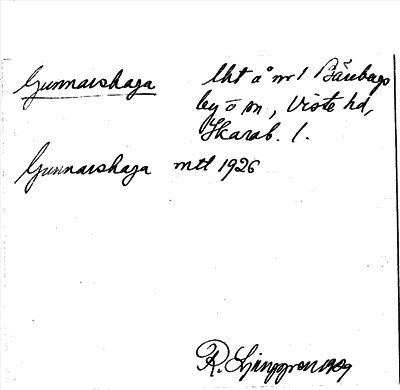 Gunnarshaga lht å nr 1 Bärebergs
by o sn, Viste hd,
Skarab. l.
Gunnarshaga mtl 1926
R. Ljunggren 1909